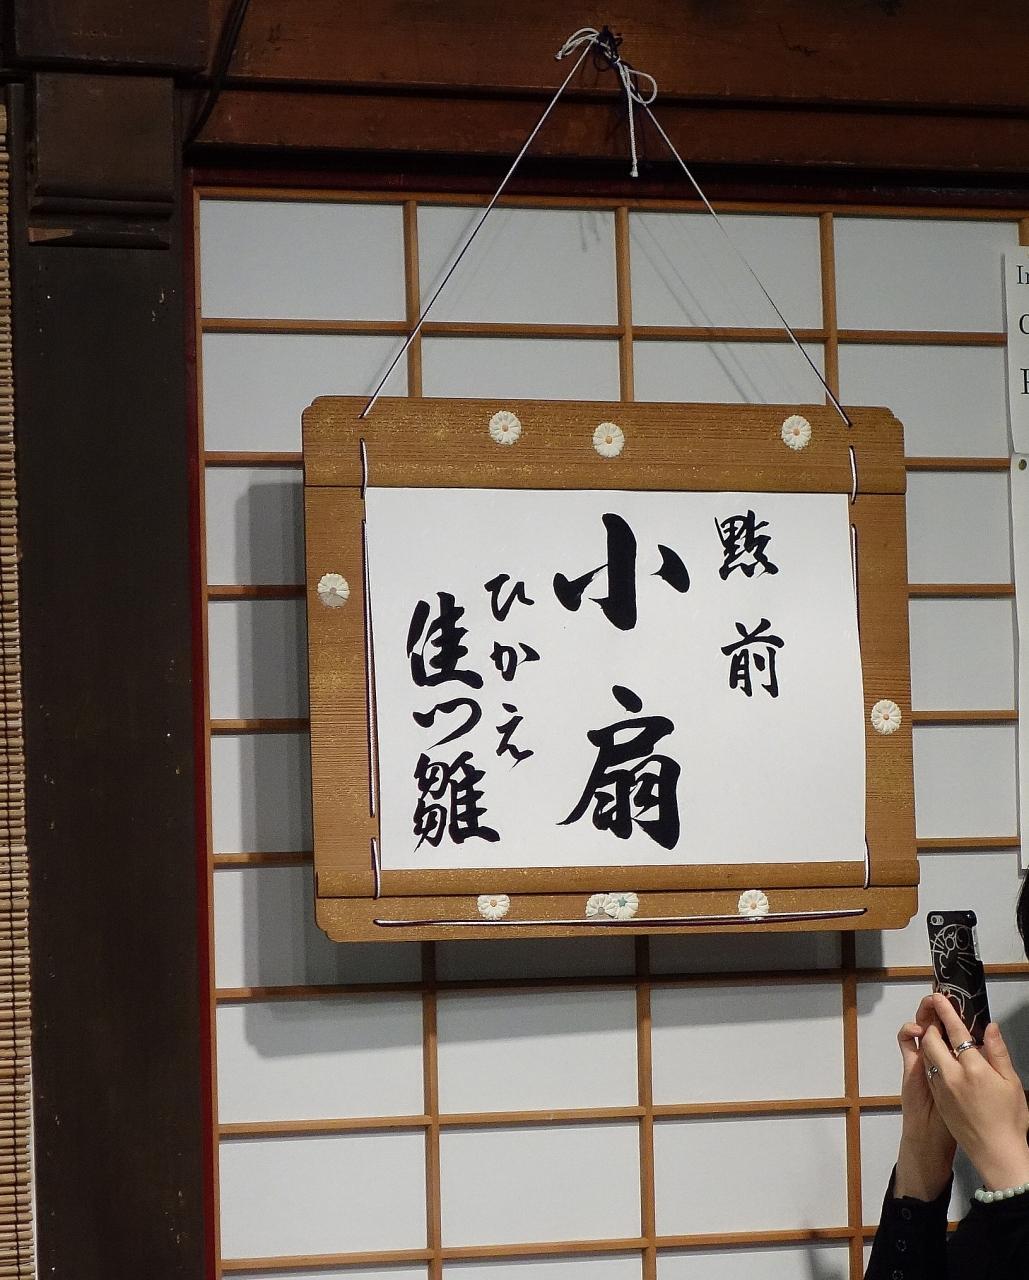 點前
小扇
ひかえ
佳つ雛